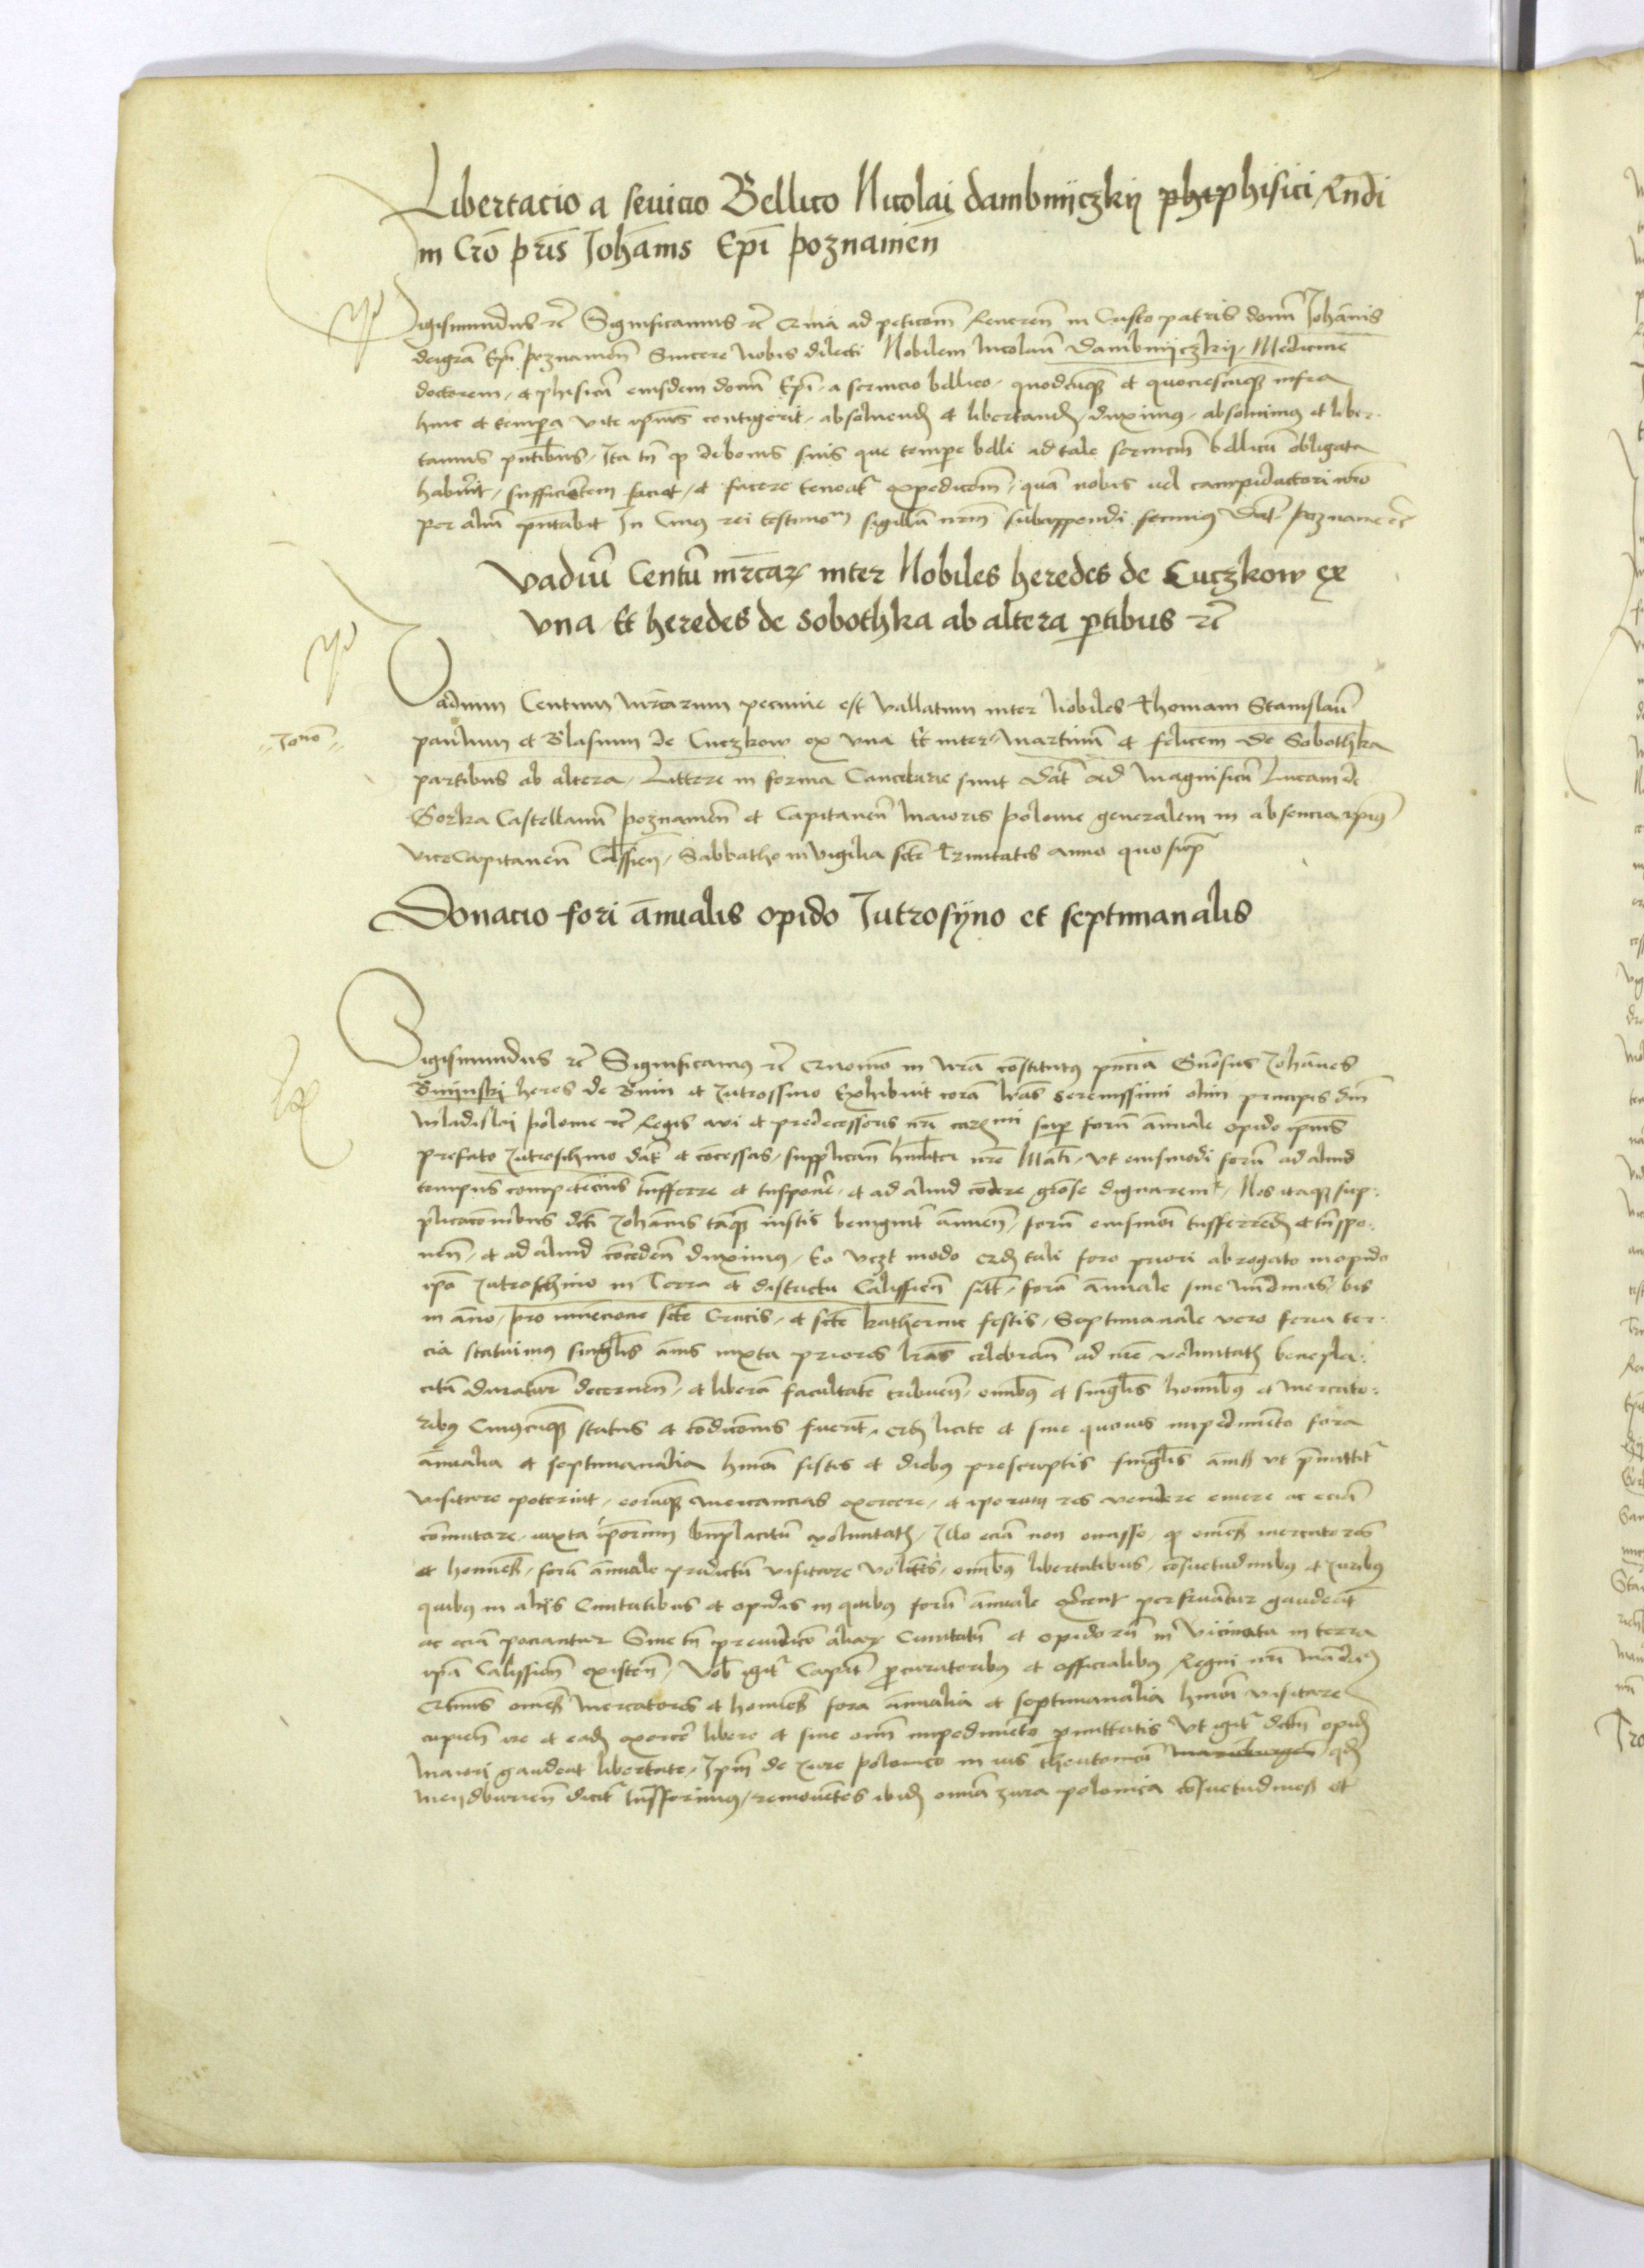 Libertacio a seuicio Bellico Nicolaij dambnijczkij phiphisici Rndi
in Cro pris Johanis Epi poznanien
Sigismundus rc Significamus rc Quia ad peticom Reueren in Cristo patris domni Johanis
deigra Epi poznaniens Sincere nobis dilecti Nobilem Nicolaum Dambnijczkij Medicine
doctorem, et phisicum eiusdem domi Epi, a seruicio bellico, quodcunqz et quociescunqz infra
hinc et tempora vite ipsius contigerit, absoluend et libertand, duximus, absoluimus et liber-
tamus pntibus, Ita tn qz de bonis suis que tempore belli ad tale seruicium bellicum obligata
habuerit, sufficientem faciat, et facere teneatur expedicom, quam nobis uel campiductori nro
per alium pntabit In Cuius rei testimom sigillum nrm subappendi fecimus Dat poznanie etc
Vadium Centum mrcarz inter Nobiles heredes de Cuczkow ex
vna Et heredes de Sobothka ab altera ptibus rc
Vadium Centum mrcarum pecunie est vallatum inter Nobiles Thomam Stanislaum
paulum et Blasium de Cuczkow ex vna Et inter Martinum et felicem de Sobothka
partibus ab altera, Littere in forma Cancelarie sunt dat ad Magnificum Lucam de
Gorka Castellanum poznanien et Capitaneum Maioris polonie generalem in absencia ipius
vicecapitaneum Calissien, Sabbatho in vigilia scte Trinitatis anno quo supra
Donacio fori annualis opido Jutrosijno et septimanalis
Sigismundus rc Significamus rc Quomodo in nra constitutus pncia Gnosus Johannes
Bnijnskij heres de Bnin et Jutrossino Exhibuit coram lras serenissimi olim principis dni
Wladislaij polonie rc Regis aui et predecessoris nri carmi super forum annuale opido ipius
prefato Jutroschino dat et concessas, supplicauit humiliter nre Mati, vt eiusmodi forum ad aliud
tempus competencius transferre et transponere, et ad aliud concedere giose dignaremur, Nos itaqz sup-
plicacionibus dcti Johanis tanqz iustis benignit annuen, forum eiusmodi transferrend et transpo-
nen, et ad aliud conceden duximus, Eo vczt modo qd tali foro priori abrogato in opido
ipo Jutroschino in Terra et districtu Calissien sito, forum annuale siue nundinas, bis
in anno, pro inuencione scte Crucis, et scte katherine festis, Septimanale vero feria ter-
cia statuimus singulis annis iuxta priores lras celebrand ad nre voluntatis benepla-
citum duratur decernen, et liberam facultatem tribuen, omibus et singulis hominibus et mercato-
ribus Cuiuscunqz status et condicionis fuerint, qd licite et sine quouis impedimento fora
annualia et septimanalia hmoi festis et diebus prescriptis singulis annis vt premittitur
visitare poterint, eorumqz mercancias exercere, et iporum res vendere emere ac eciam
comutare, iuxta iporum bnplacitum voluntatis, Illo eciam non omisso, qz omnes mercatores
et homines, forum annuale predictum visitare volentes, omibus libertatibus, consuetudinibus et Juribus
quibus in alijs Ciuitatibus et opidis in quibus forum annuale exercent perfruantur gaudeant
ac eciam pociantur Sine tn preiudicio aliarz Ciuitatum et opidorum in vicinata in terra
ipa Calissien existen, Vob igitur Capit procuratoribus et officialibus Regni nri mandam
Quatenus omnes mercatores et homines fora annualia et septimanalia hmoi visitare
cupien ire et ead exercere libere et sine omni impedimento permittatis Vt igitur dctum opid
maiori gaudeat libertate, Ipm de Jure polonico in ius theutonicum Mandeburgen qd
Meijdburien dicitur transferimus, remouentes ibid omia Jura polonica consuetudines et